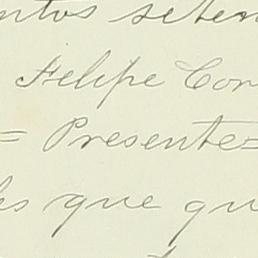 ntos seten
Felipe Cor
= Presente=
les que qu